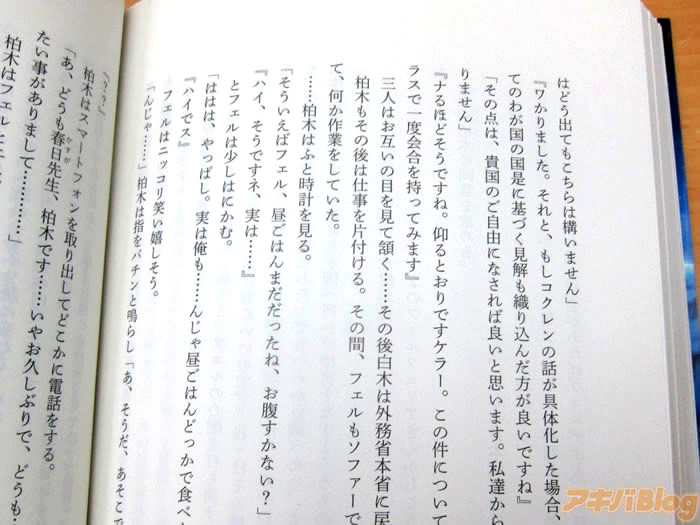 はどう出てもこちらは構いません」
『ワかりました。それと、もしコクレンの話が具体化した場合、
てのわが国の国是に基づく見解も織り込んだ方が良いですね』
「その点は、貴国のご自由になされば良いと思います。私達から
りません」
『ナるほどそうですね。仰るとおりですケラー。この件について
ラスで一度会合を持ってみます』
三人はお互いの目を見て頷く……その後白木は外務省本省に戻
柏木もその後は仕事を片付ける。その間、フェルもソファーで
て、何か作業をしていた。
……柏木はふと時計を見る。
「そういえばフェル、昼ごはんまだだったね、お腹すかない？」
『ハイ、そうですネ、実は……』
とフェルは少しはにかむ。
「ははは、やっぱし。実は俺も……んじゃ昼ごはんどっかで食べ
『ハイでス』
フェルはニッコリ笑い嬉しそう。
「んじゃ……」柏木は指をパチンと鳴らし「あ、そうだ、あそこで
『？？』
柏木はスマートフォンを取り出してどこかに電話をする。
「あ、どうも春日先生、柏木です……いやお久しぶりで、どうも
たい事がありまして…………」
柏木はフェルに
アキバBlog